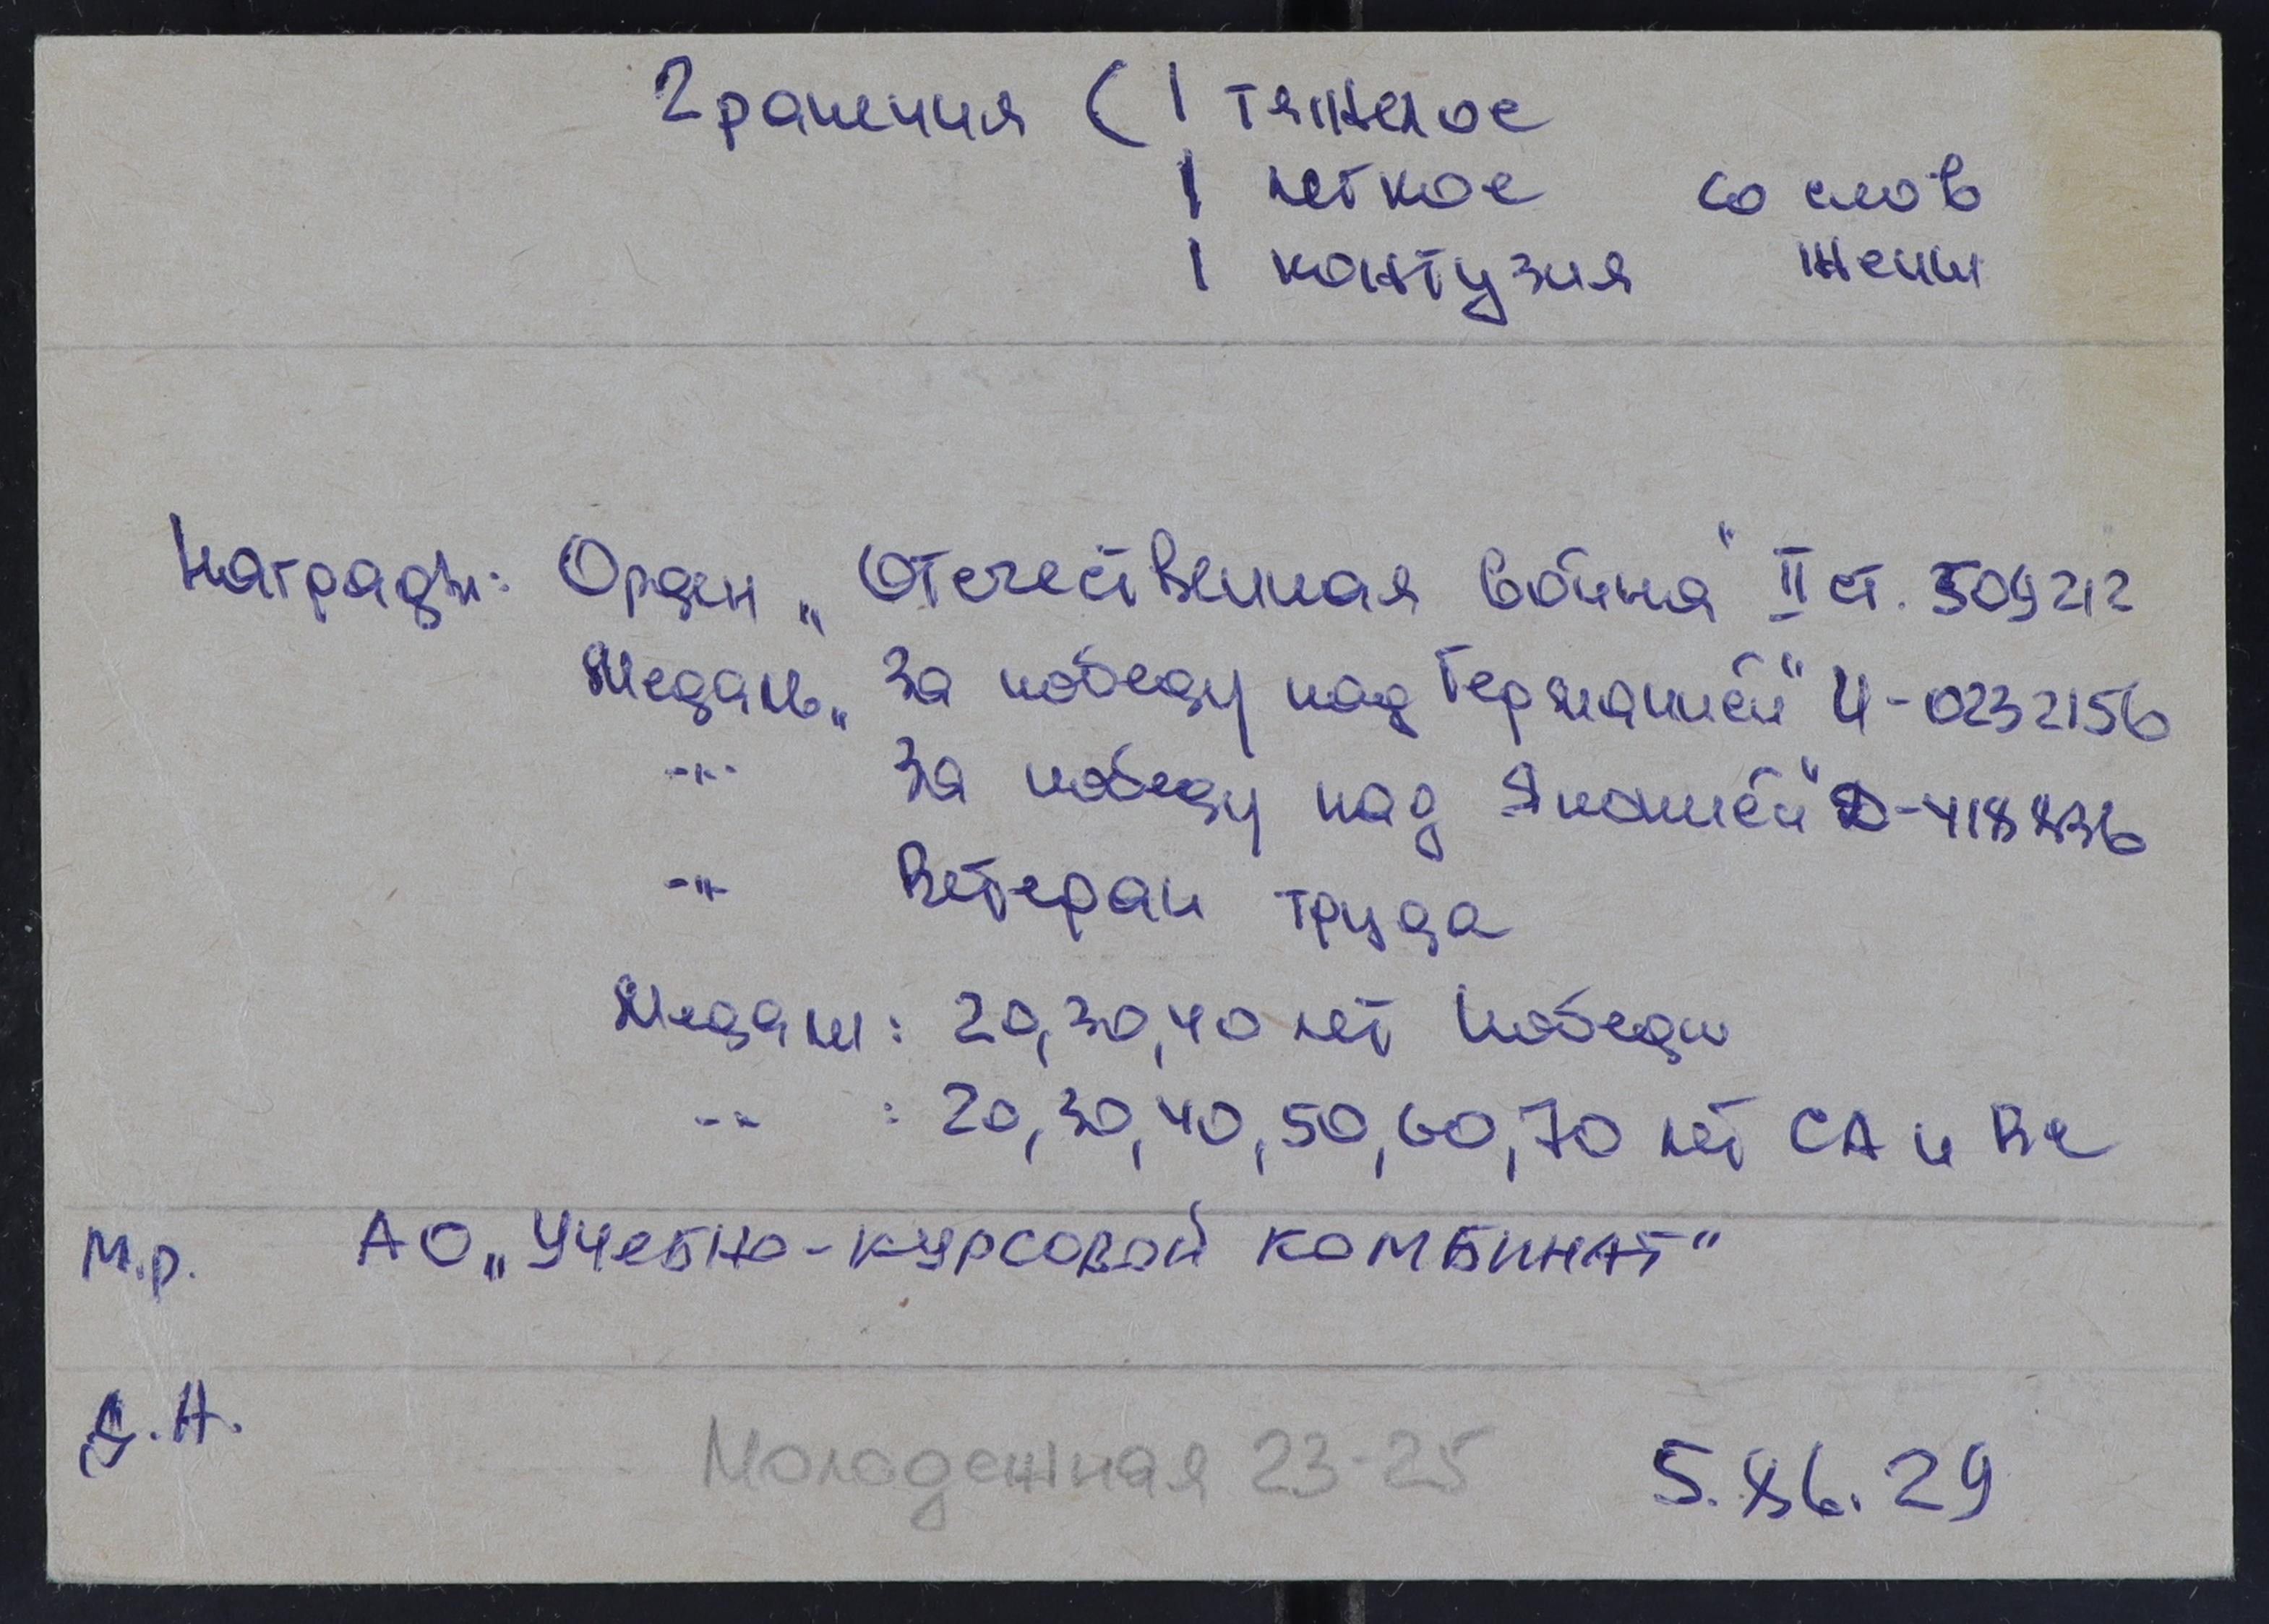 2 ранения ( 1 тяжелое
1 легкое со слов
1 контузия жены
Награды: Орден „Отечественная война" II ст. 509212
Медаль „За победу над Германией" Ц-0232156
-"- За победу над Японией" Д-418836
-"- Ветеран труда
Медали: 20, 30, 40 лет Победы
-"- : 20, 30, 40, 50, 60, 70 лет СА и ВС
М.р. АО „Учебно-курсовой комбинат"
Д.А.
Молодежная 23-25 5.86.29